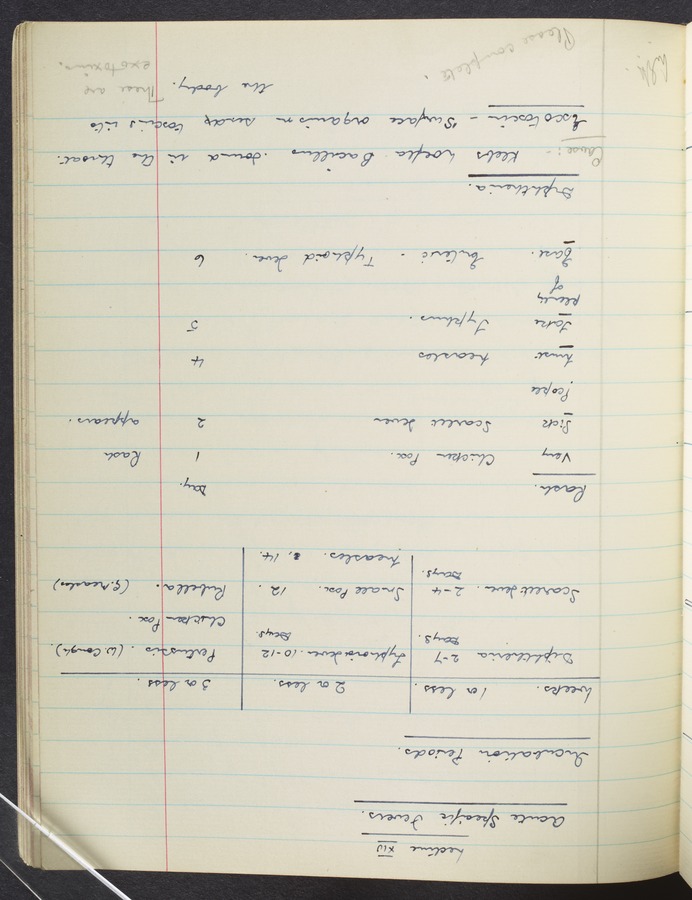 Lecture XIV
Acute Specific Fevers.
Incubation Periods.
Weeks. 1 or less. 2 or less. 3 or less.
Diphtheria 2-7 Days. Typhoid Fever. 10-12 Days. Pertussis. (W. Cough).
Chicken Pox
Scarlet Fever. 2-4 Days. Small Pox. 12. Rubella. (G. Measles)
Measles. 14.
Rash. Day.
Very Chicken Pox. 1 Rash
Sick Scarlet Fever 2 appears.
People.
Must Measles 4
Take Typhus. 5
Plenty
of
Ease. Enteric - Typhoid Fever. 6
Diphtheria.
Cause:- Klebs Loeffla Bacillus. found in the throat.
Exotoxin - Surface organism sends toxins into
the body. These are
exotoxins.
Please complete.